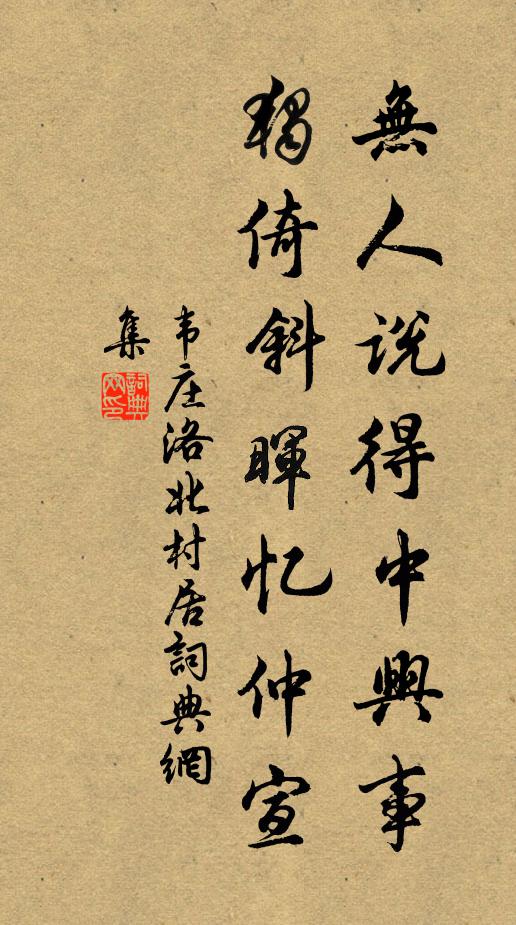 無人説得中興事
獨倚斜暉忆仲宣
韦庄洛北村居詞典網
集
詞典網印